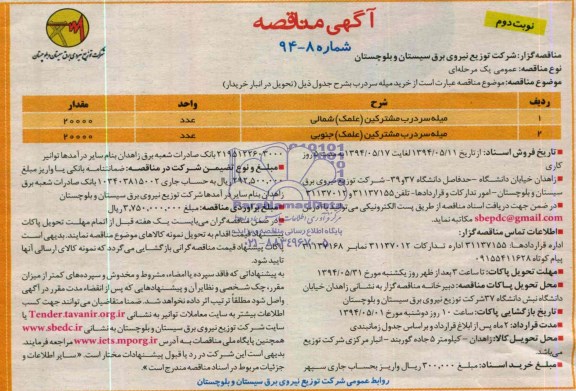 نوبت دوم
آگهی مناقصه
شماره ۸-۹۴
شرکت توزیع نیروی برق سیستان و بلوچستان
مناقصه‌گزار: شرکت توزیع نیروی برق سیستان و بلوچستان
نوع مناقصه: عمومی یک مرحله‌ای
موضوع مناقصه: موضوع مناقصه عبارت است از خرید میله سر درب بشرح جدول ذیل (تحویل در انبار خریدار)
ردیف شرح واحد مقدار
۱ میله سر درب مشترکین (علمک) شمالی عدد ۲۰۰۰۰
۲ میله سر درب مشترکین (علمک) جنوبی عدد ۲۰۰۰۰
تاریخ فروش اسناد: از تاریخ ۱۳۹۴/۰۵/۱۱ لغایت ۱۳۹۴/۰۵/۱۷ به مدت روز
کاری
زاهدان خیابان دانشگاه - حدفاصل دانشگاه ۳۷ و ۳۹ - شرکت توزیع نیروی برق
سیستان و بلوچستان - امور تدارکات و قراردادها - تلفن ۳۱۱۳۷۱۵۵
در ضمن جهت دریافت اسناد مناقصه از طریق پست الکترونیکی می‌توانید
sbepdc@gmail.com مکاتبه نماید.
اطلاعات تماس مناقصه‌گزار:
اداره قراردادها: ۳۱۱۳۷۱۵۵ اداره تدارکات ۳۱۱۳۷۰۱۲ نمابر ۳۱۱۳۷۱۶۸
پیام کوتاه ۰۹۱۵۵۴۱۱۶۲۸
مهلت تحویل پاکات: تا ساعت ۳ بعد از ظهر روز یکشنبه مورخ ۱۳۹۴/۰۵/۳۱
محل تحویل پاکات مناقصه: دبیرخانه مناقصه گزار به نشانی زاهدان خیابان
دانشگاه نبش دانشگاه ۳۷ شرکت توزیع نیروی برق سیستان و بلوچستان
تاریخ بازگشایی پاکات: ساعت ۱۰ روز دوشنبه مورخ
مدت قرارداد: ۲ ماه پس از ابلاغ قرارداد بر اساس جدول زمانبندی
محل تحویل کالا: زاهدان - کیلومتر ۵ جاده گوربند - انبار مرکزی شرکت توزیع
می‌باشد
مبلغ خرید اسناد: مبلغ ۳۰۰,۰۰۰ ریال واریز بحساب جاری سپهر
بانک صادرات شعبه برق زاهدان بنام سایر درآمدها توانیر
مبلغ و نوع تضمین شرکت در مناقصه: ضمانتنامه بانکی یا واریز مبلغ
ریال به حساب جاری بانک صادرات شعبه برق
زاهدان بنام سایر درآمدها شرکت توزیع نیروی برق سیستان و بلوچستان
مبلغ برآوردی مناقصه: مبلغ ریال
در ضمن مناقصه گران می‌بایست یک هفته قبل از اتمام مهلت تحویل پاکات
اقدام به تحویل نمونه کالاهای موضوع مناقصه نمایند. بدیهی است
پاکات پیشنهاد قیمت مناقصه گرانی بازگشایی می‌گردد که نمونه کالای ارسالی آنها
تایید شود.
به پیشنهاداتی که فاقد سپرده یا امضاء، مشروط و مخدوش و سپرده‌های کمتر از میزان
مقرر، چک شخصی و نظایر آن و پیشنهادهایی که پس از انقضاء مدت مقرر در آگهی
واصل شود مطلقاً ترتیب اثر داده نخواهد شد. ضمنا متقاضیان می‌توانند جهت کسب
اطلاعات بیشتر به سایت معاملات توانیر به نشانی Tender.tavanir.org.ir یا
سایت شرکت توزیع نیروی برق سیستان و بلوچستان به نشانی www.sbedc.ir
همچنین پایگاه ملی مناقصات به آدرس www.iets.mporg.ir مراجعه فرمایند.
بدیهی است این شرکت در رد یا قبول پیشنهادات مختار است. «سایر اطلاعات و
جزئیات مربوط در اسناد مناقصه مندرج است»
روابط عمومی شرکت توزیع نیروی برق سیستان و بلوچستان
پایگاه اطلاع رسانی مناقصه و مزایده